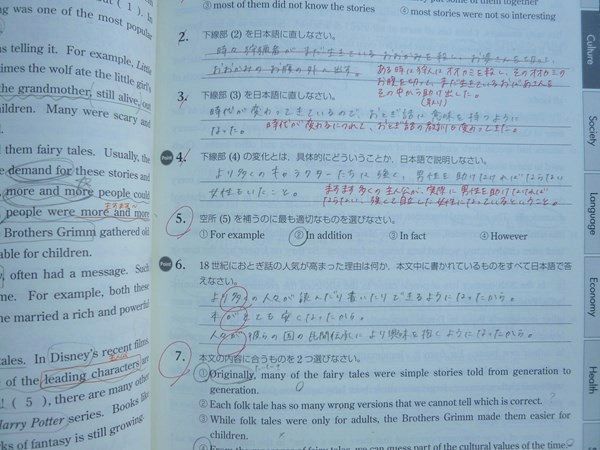 ng was one of the most popular
( 1 ). In
s telling it. For example, Little
times the wolf ate the little girl's
the grandmother, still alive, out
children. Many were scary and
d them fairy tales. Usually, the
e demand for these stories and
more and more people could
people were more and more
ますます〜
Brothers Grimm gathered old
able for children.
often had a message. Such
me. For example, both these
e married a rich and powerful
tales. In Disney's recent films
主人公
of the leading characters are
! ( 5 ), there are many other
Harry Potter series. Books like
rks of fantasy is still growing.
③ most of them did not know the stories
④ most stories were not so interesting
2. 下線部 (2) を日本語に直しなさい。
時々狩猟者がまだ生きているおおかみを殺し、お婆さんを切って、
おおかみのお腹の外へ出す。
ある時は狩人はオオカミを殺し、そのオオカミの
お腹を切って、まだ生きているおばあさんを
その中から助け出した。
3. 下線部 (3) を日本語に直しなさい。
時代が変わってきているので、おとぎ話に興味を持つように
なった。
時代が変わるにつれて、おとぎ話の教訓も変わってきた。
Point 4. 下線部 (4) の変化とは、具体的にどういうことか、日本語で説明しなさい。
より多くのキャラクターたちに強く、男性を助けなければならない
女性をもいたこと。
ますます多くの主人公が、実際に男性を助けなければ
ならない、強くて自立した女性になっているということ。
5. 空所 (5) を補うのに最も適切なものを選びなさい。
① For example ② In addition ③ In fact ④ However
Point 6. 18 世紀におとぎ話の人気が高まった理由は何か、本文中に書かれているものをすべて日本語で答
えなさい。
より多くの人々が読んだり書いたりできるようになったから。
本がとても安くなったから。
人々が彼らの国の民間伝承により興味を抱くようになったから。
7. 本文の内容に合うものを 2 つ選びなさい。
① Originally, many of the fairy tales were simple stories told from generation to
generation.
② Each folk tale has so many wrong versions that we cannot tell which is correct.
③ While folk tales were only for adults, the Brothers Grimm made them easier for
children.
④ From the
of fairy tales, we can guess part of the cultural values of the time.
Culture
Society
Language
Economy
Health